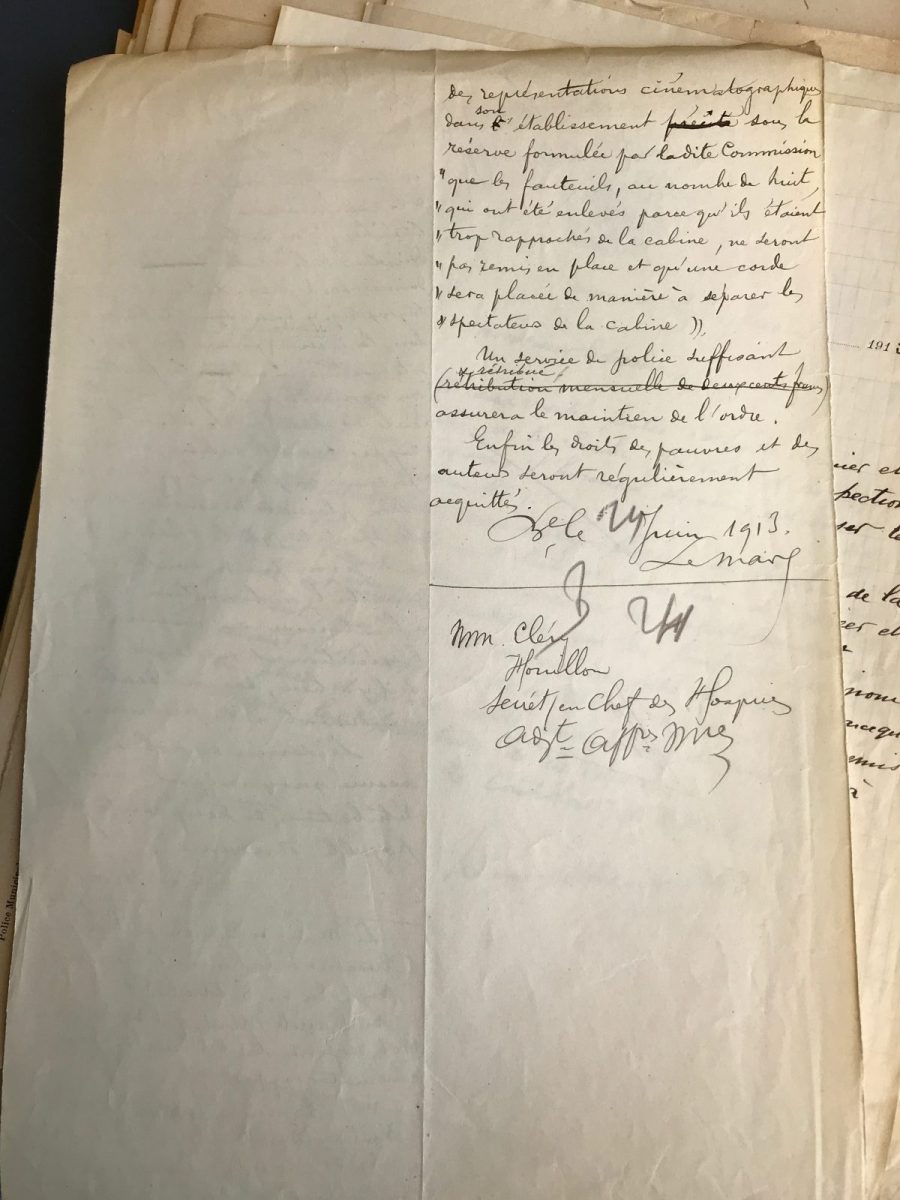 des représentations cinématographiques
son
dans établissement précité sous la
réserve formulée par ladite Commission
"que les fauteuils, au nombre de huit,
"qui ont été enlevés parce qu'ils étaient
"trop rapprochés de la cabine, ne seront
"pas remis en place et qu'une corde
"sera placée de manière à séparer les
"spectateurs de la cabine )),
Un service de police suffisant
rétribué
(rétribution mensuelle de deux cents francs)
assurera le maintien de l'ordre.
Enfin les droits des pauvres et des
auteurs seront régulièrement
acquittés.
le 24 Juin 1913.
Le Maire
24
MM. Cléry
Houillon
Secrét/en Chef des Hospices
Adjt
191
ier et
pection
ser le
de la
cer et
nom
arcequ
mis
à
Police Munici